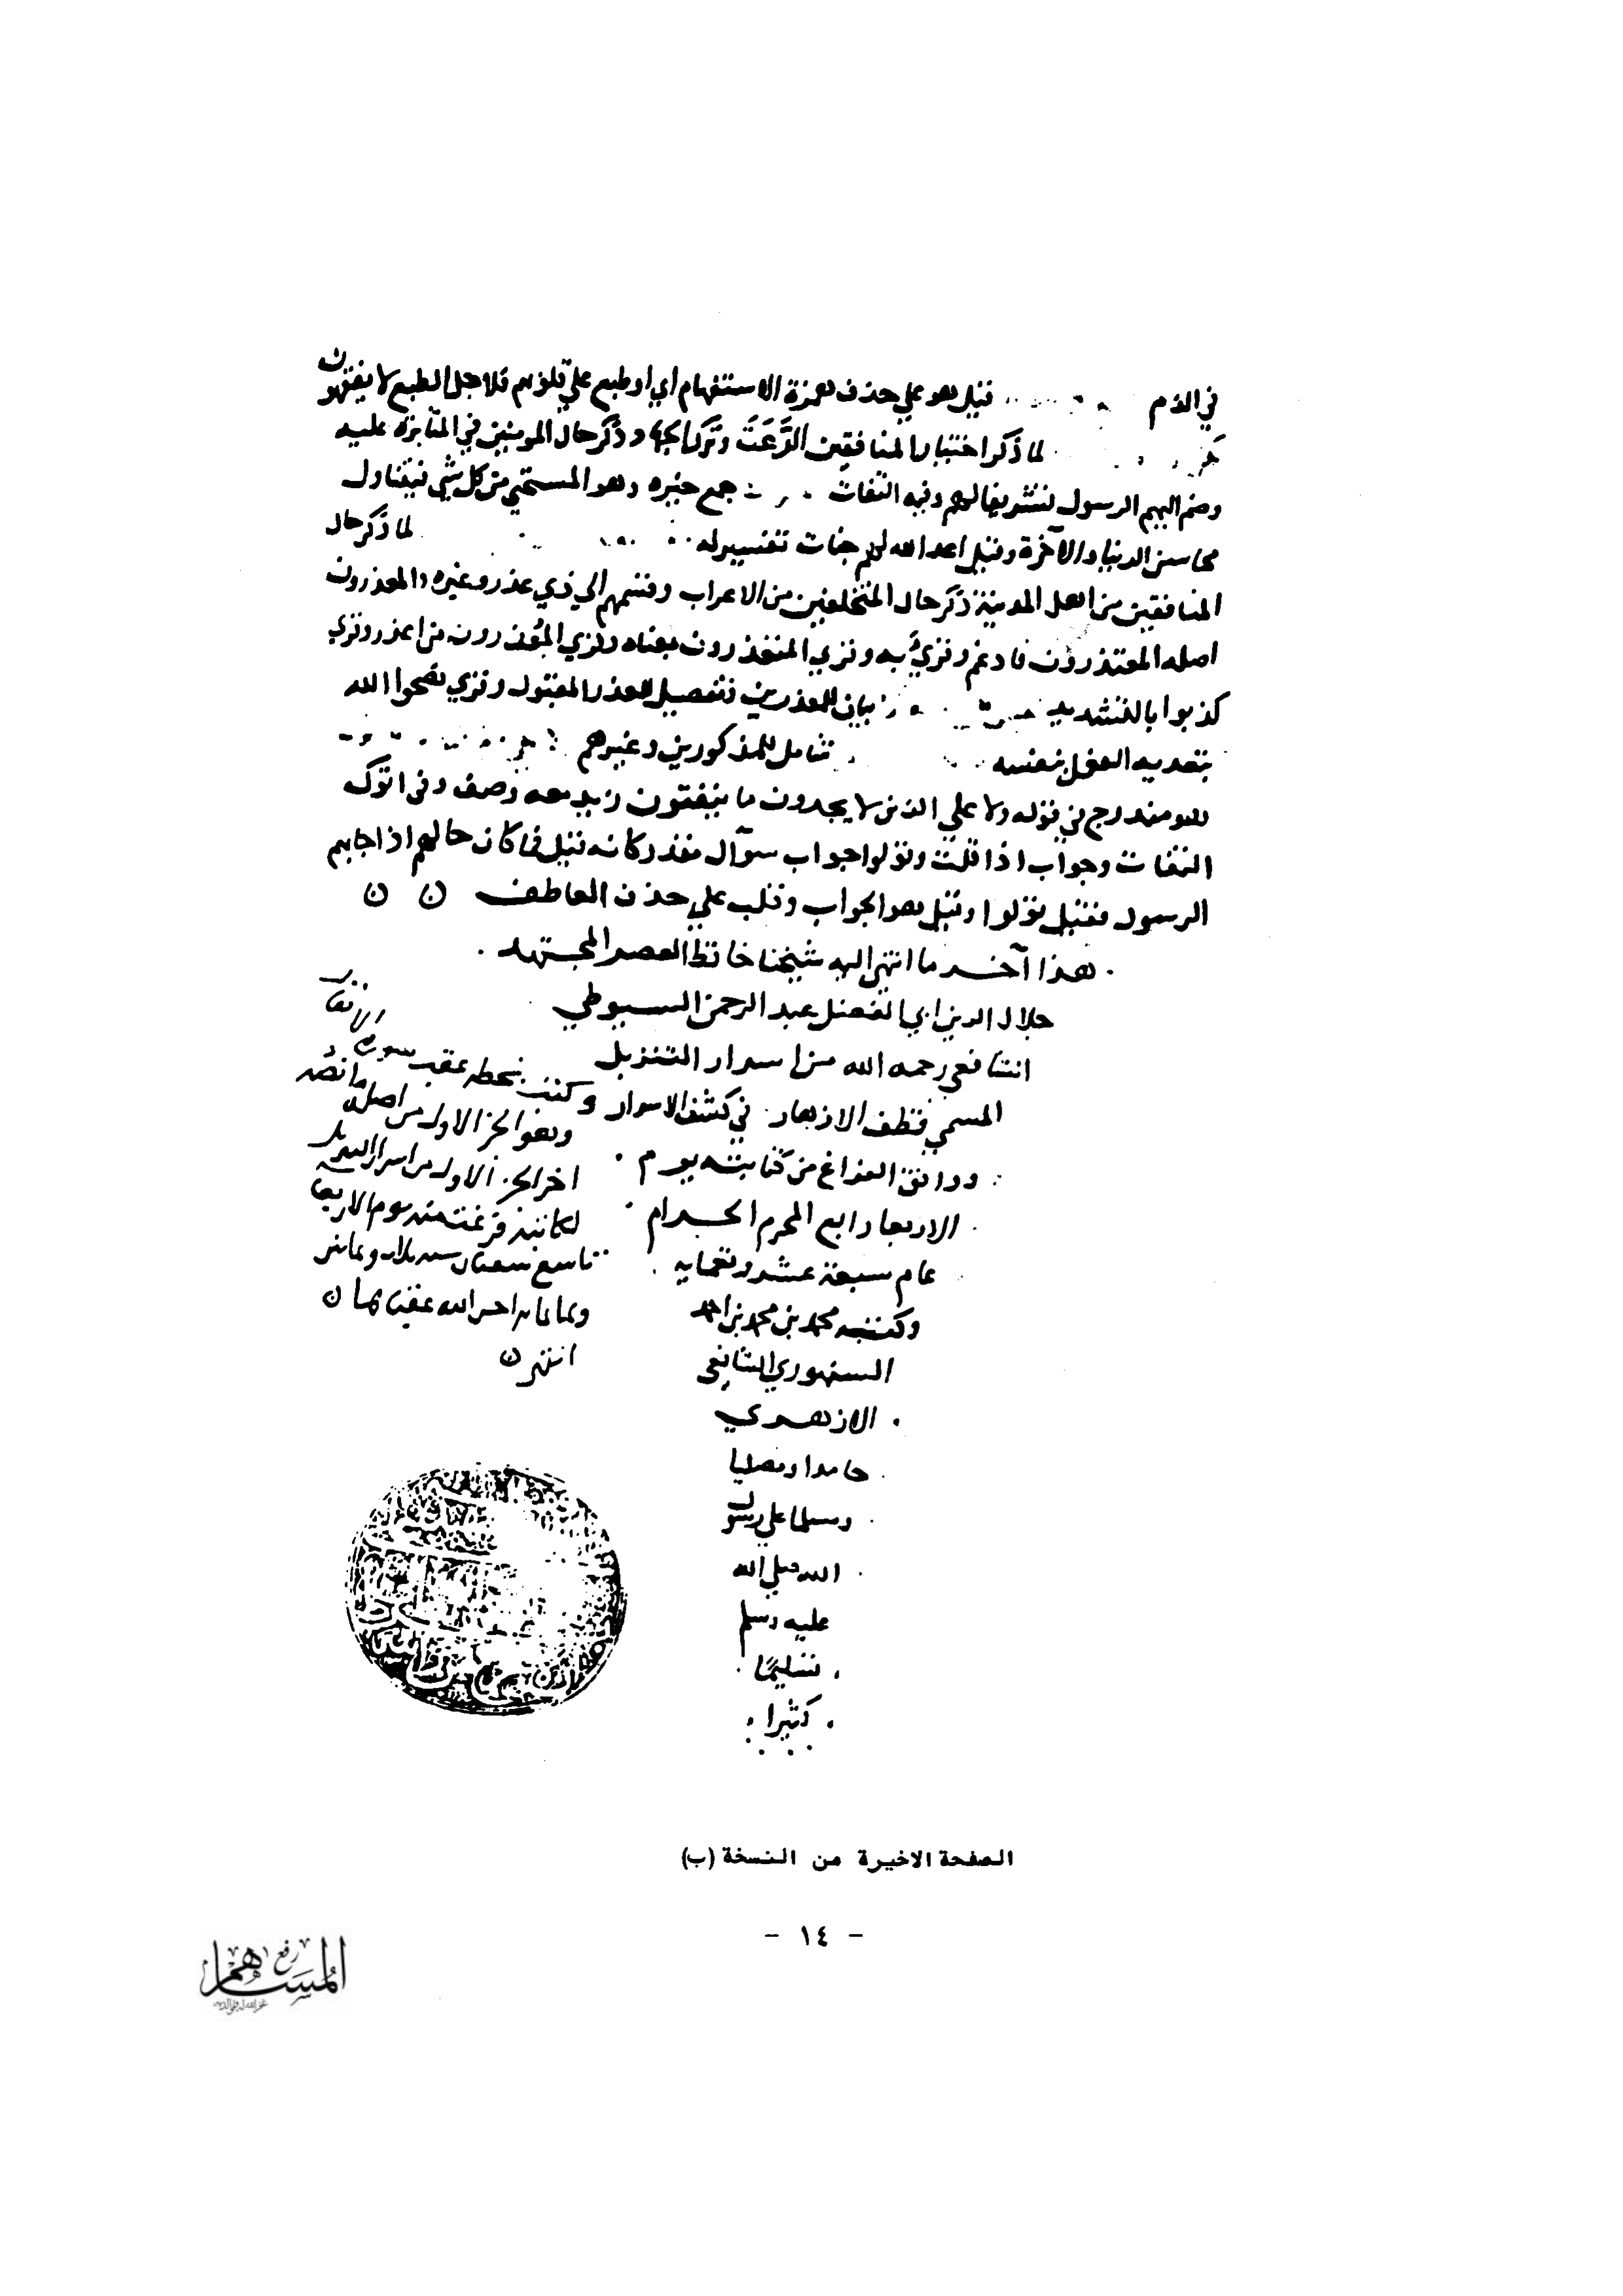 في الذم قيل هو علي حذف همزة الاستفهام اي او طبع علي قلوبهم فلاجل الطبع لا يفقهون
لما ذكر اختيار المنافقين الدَّعَة وذكر حال المومنين في المثابرة عليه
وضم اليهم الرسول تشريفا لهم وفيه التفات جمع خيره وهو المستحسن من كل شي فيتناول
محاسن الدنيا والآخرة وقيل اعد الله لهم جنات تفسير له لما ذكر حال
المنافقين من اهل المدينة ذكر حال المتخلفين من الاعراب وقسمهم الي ذي عذر وغيره والمعذرون
اصله المعتذرون فادغم وقري به وقري المتعذرون بمعناه وقري المُعْذرون من اعذر وقري
كذبوا بالتشديد بيان للمعذرين وتفصيل للعذر المقبول وقري نصحوا الله
بتعدية الفعل بنفسه شامل للمذكورين وغيرهم
هو مندرج في قوله ولا علي الذين لا يجدون ما ينفقون زيد معه وصف وفي اتوك
التفات وجواب اذا قلت وتولوا جواب سوآل مقدر كانه قيل فما كان حالهم اذ اجابهم
الرسول فقيل تولوا وقيل هو الجواب وقلت علي حذف العاطف ن ن
هذا آخر ما انتهي اليه شيخنا حافظ العصر المجتهد
جلال الدين ابي الفضل عبد الرحمن السيوطي
الشافعي رحمه الله من اسرار التنزيل
المسمي قطف الازهار في كشف الاسرار
ووافق الفراغ من كتابته يوم
الاربعا رابع المحرم الحرام
عام سبعة عشر وتسعمايه
وكتبه محمد بن محمد بن احمد
السنهوري الشافعي
الازهري
حامدا ومصليا
ومسلما علي رسول
الله صلي الله
عليه وسلم
تسليمًا
كثيرا
وكتب بخطه عقب سورة
الانفال
ما نصه
وهو الجز الاول من اصله
اخر الجز الاول من اسرار التنزيل
لكاتبه فرغت منه يوم الاربعا
تاسع شعبان سنه ثلاث وثمانين
وثمانمايه احسن الله عقباها ن
انتهي ن
الصفحة الاخيرة من النسخة (ب)
- ١٤ -
رفع
المساهم
غفر الله له ولوالديه